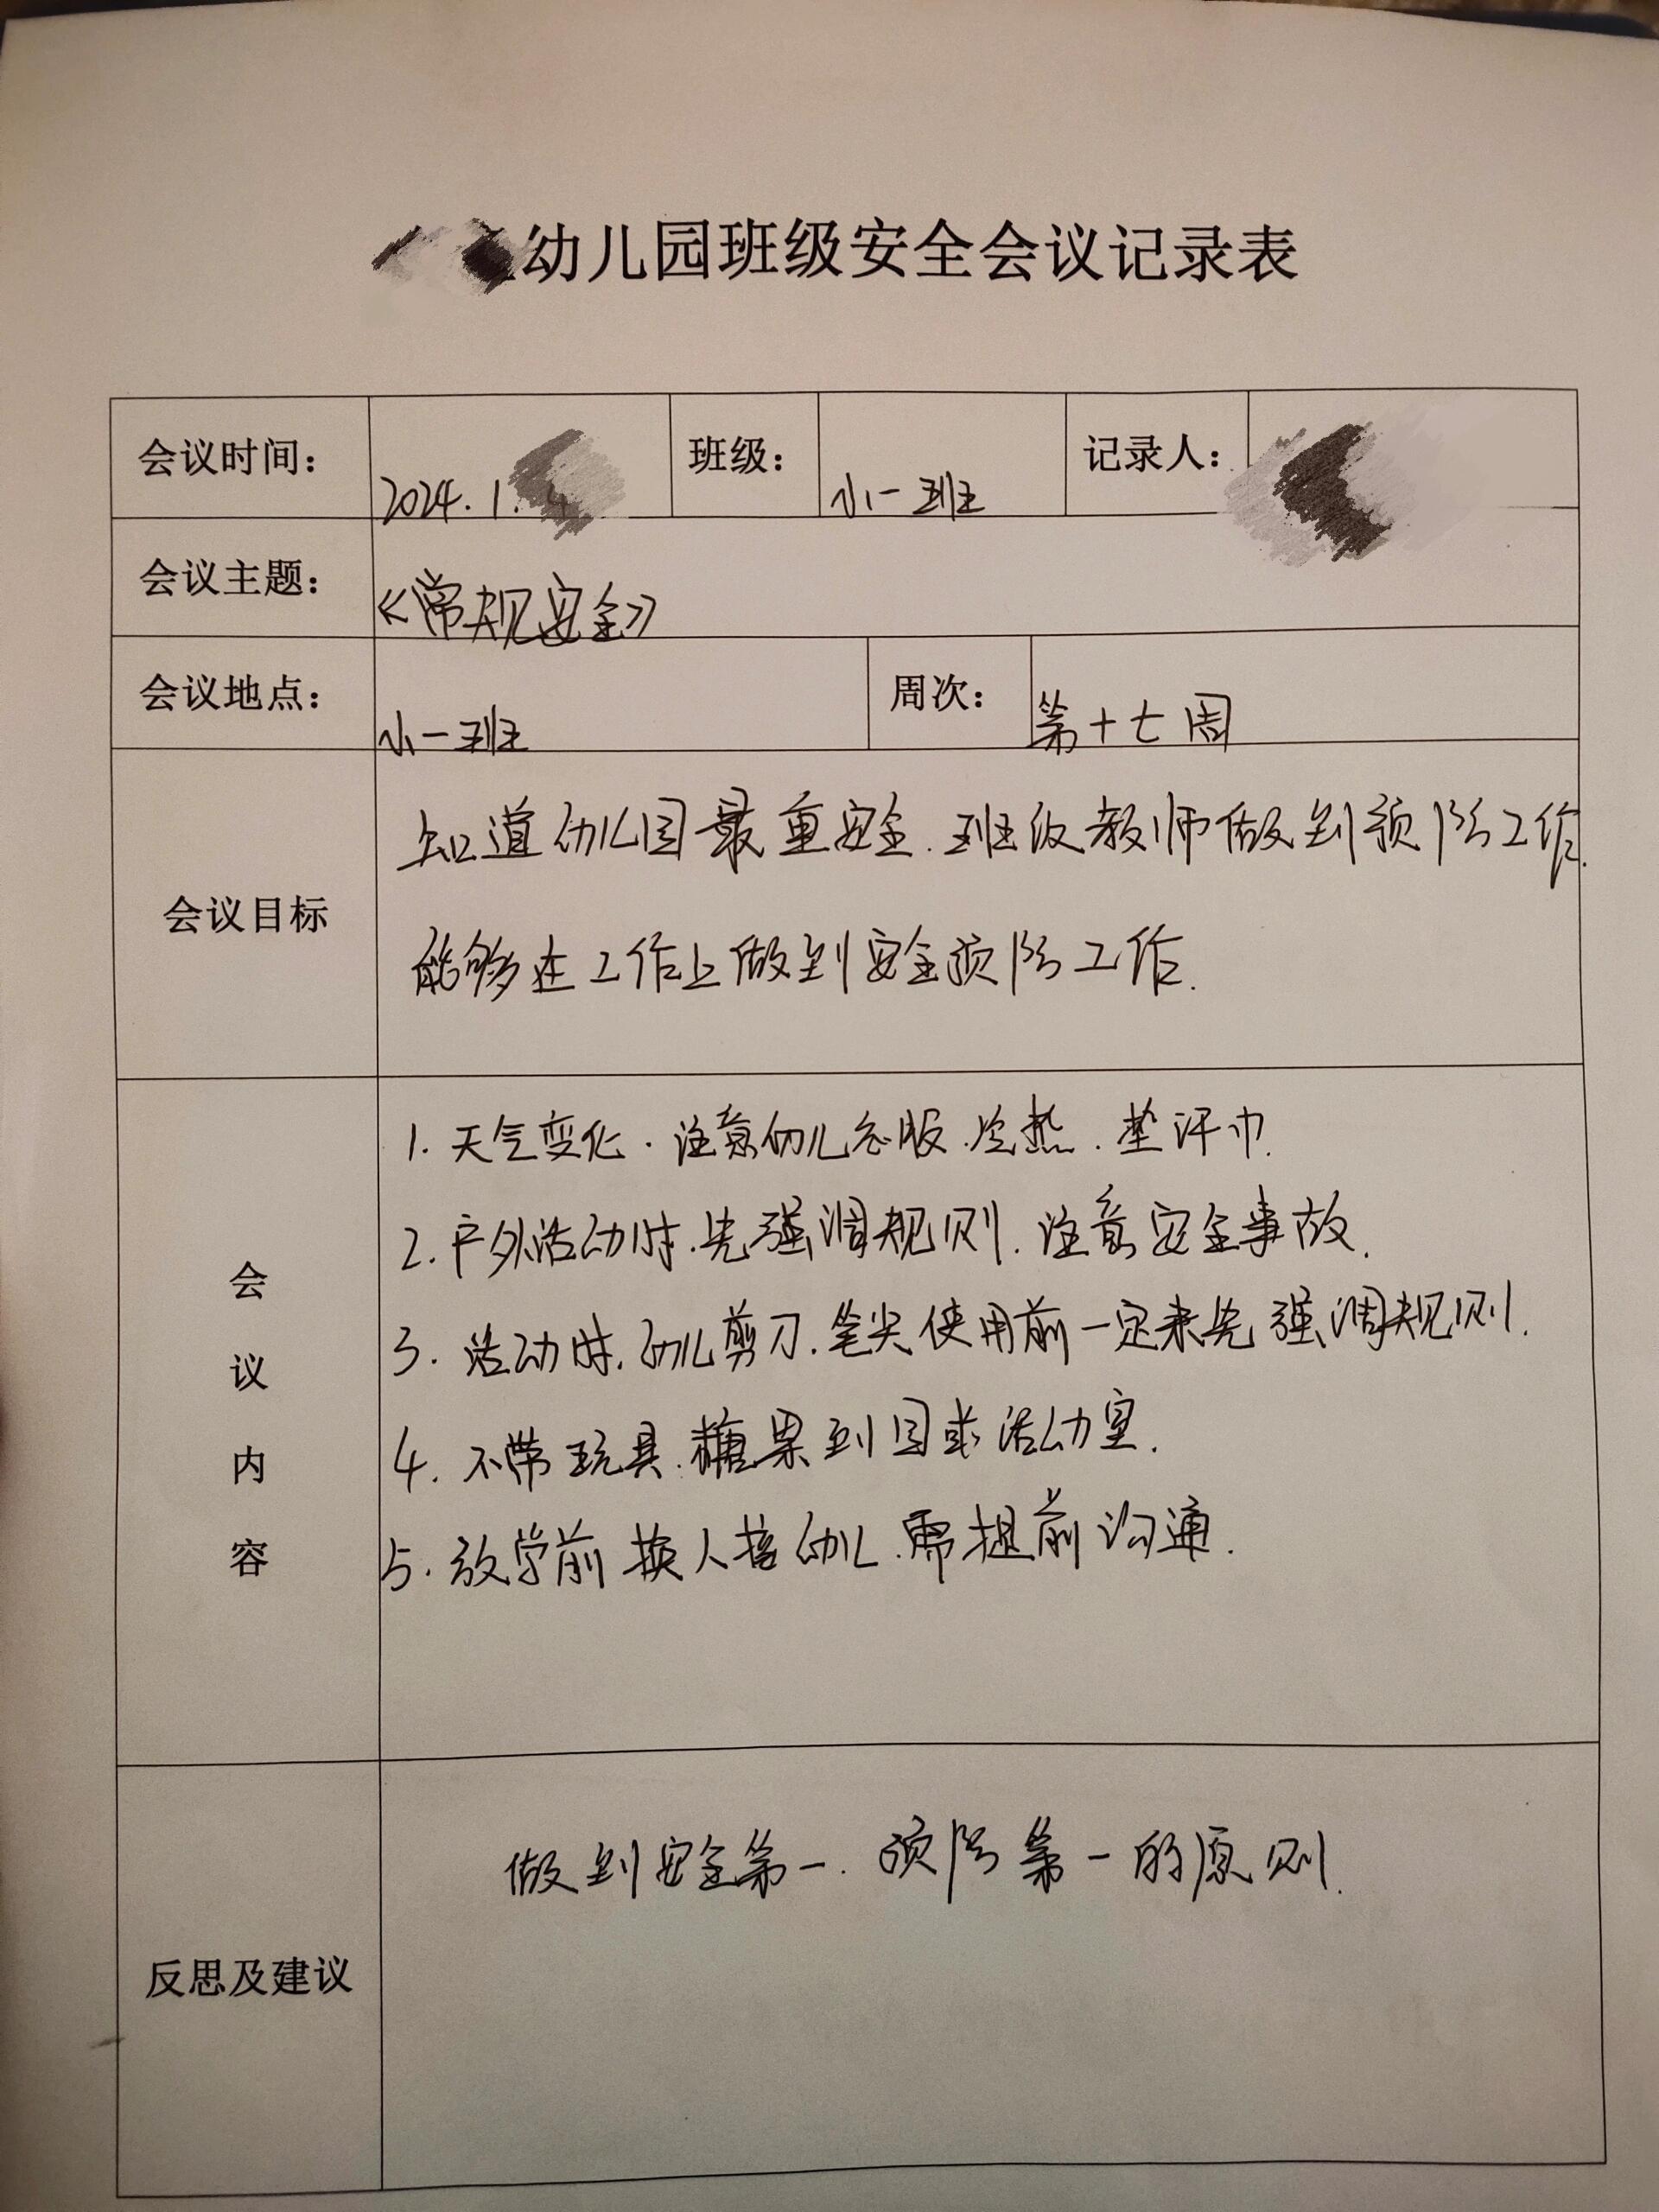 幼儿园班级安全会议记录表
会议时间： 2024.1. 班级： 小一班 记录人：
会议主题： 《常规安全》
会议地点： 小一班 周次： 第十七周
会议目标
知道幼儿园最重安全.班级教师做到预防工作.
能够在工作上做到安全预防工作.
会议内容
1.天气变化.注意幼儿衣服.冷热.垫汗巾.
2.户外活动时.先强调规则.注意安全事故.
3.活动时.幼儿剪刀.笔尖使用前一定来先强调规则.
4.不带玩具.糖果到园或活动室.
5.放学前换人接幼儿.需提前沟通.
反思及建议
做到安全第一.预防第一的原则.